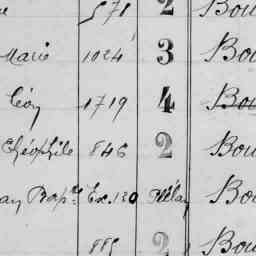 571 2 Bou
Marie 1024 3 Bou
Léon 1719 4 Bou
Théophile 846 2 Bou
Ex. 130 Mélay Bou
885 2 Bou